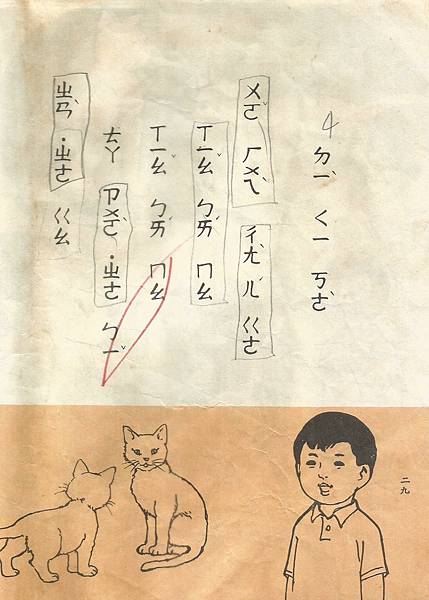 4 ㄉㄧˋ ㄑㄧ ㄎㄜˋ
ㄨㄛˇ ㄏㄨㄟˋ ㄔㄤˋ ㄦˊ ㄍㄜ
ㄒㄧㄠˇ ㄅㄞˊ ㄇㄠ
ㄒㄧㄠˇ ㄅㄞˊ ㄇㄠ
ㄊㄚ ㄗㄨㄛˋ ˙ㄓㄜ ㄅㄧˇ
ㄓㄢˋ ˙ㄓㄜ ㄍㄠ
二九